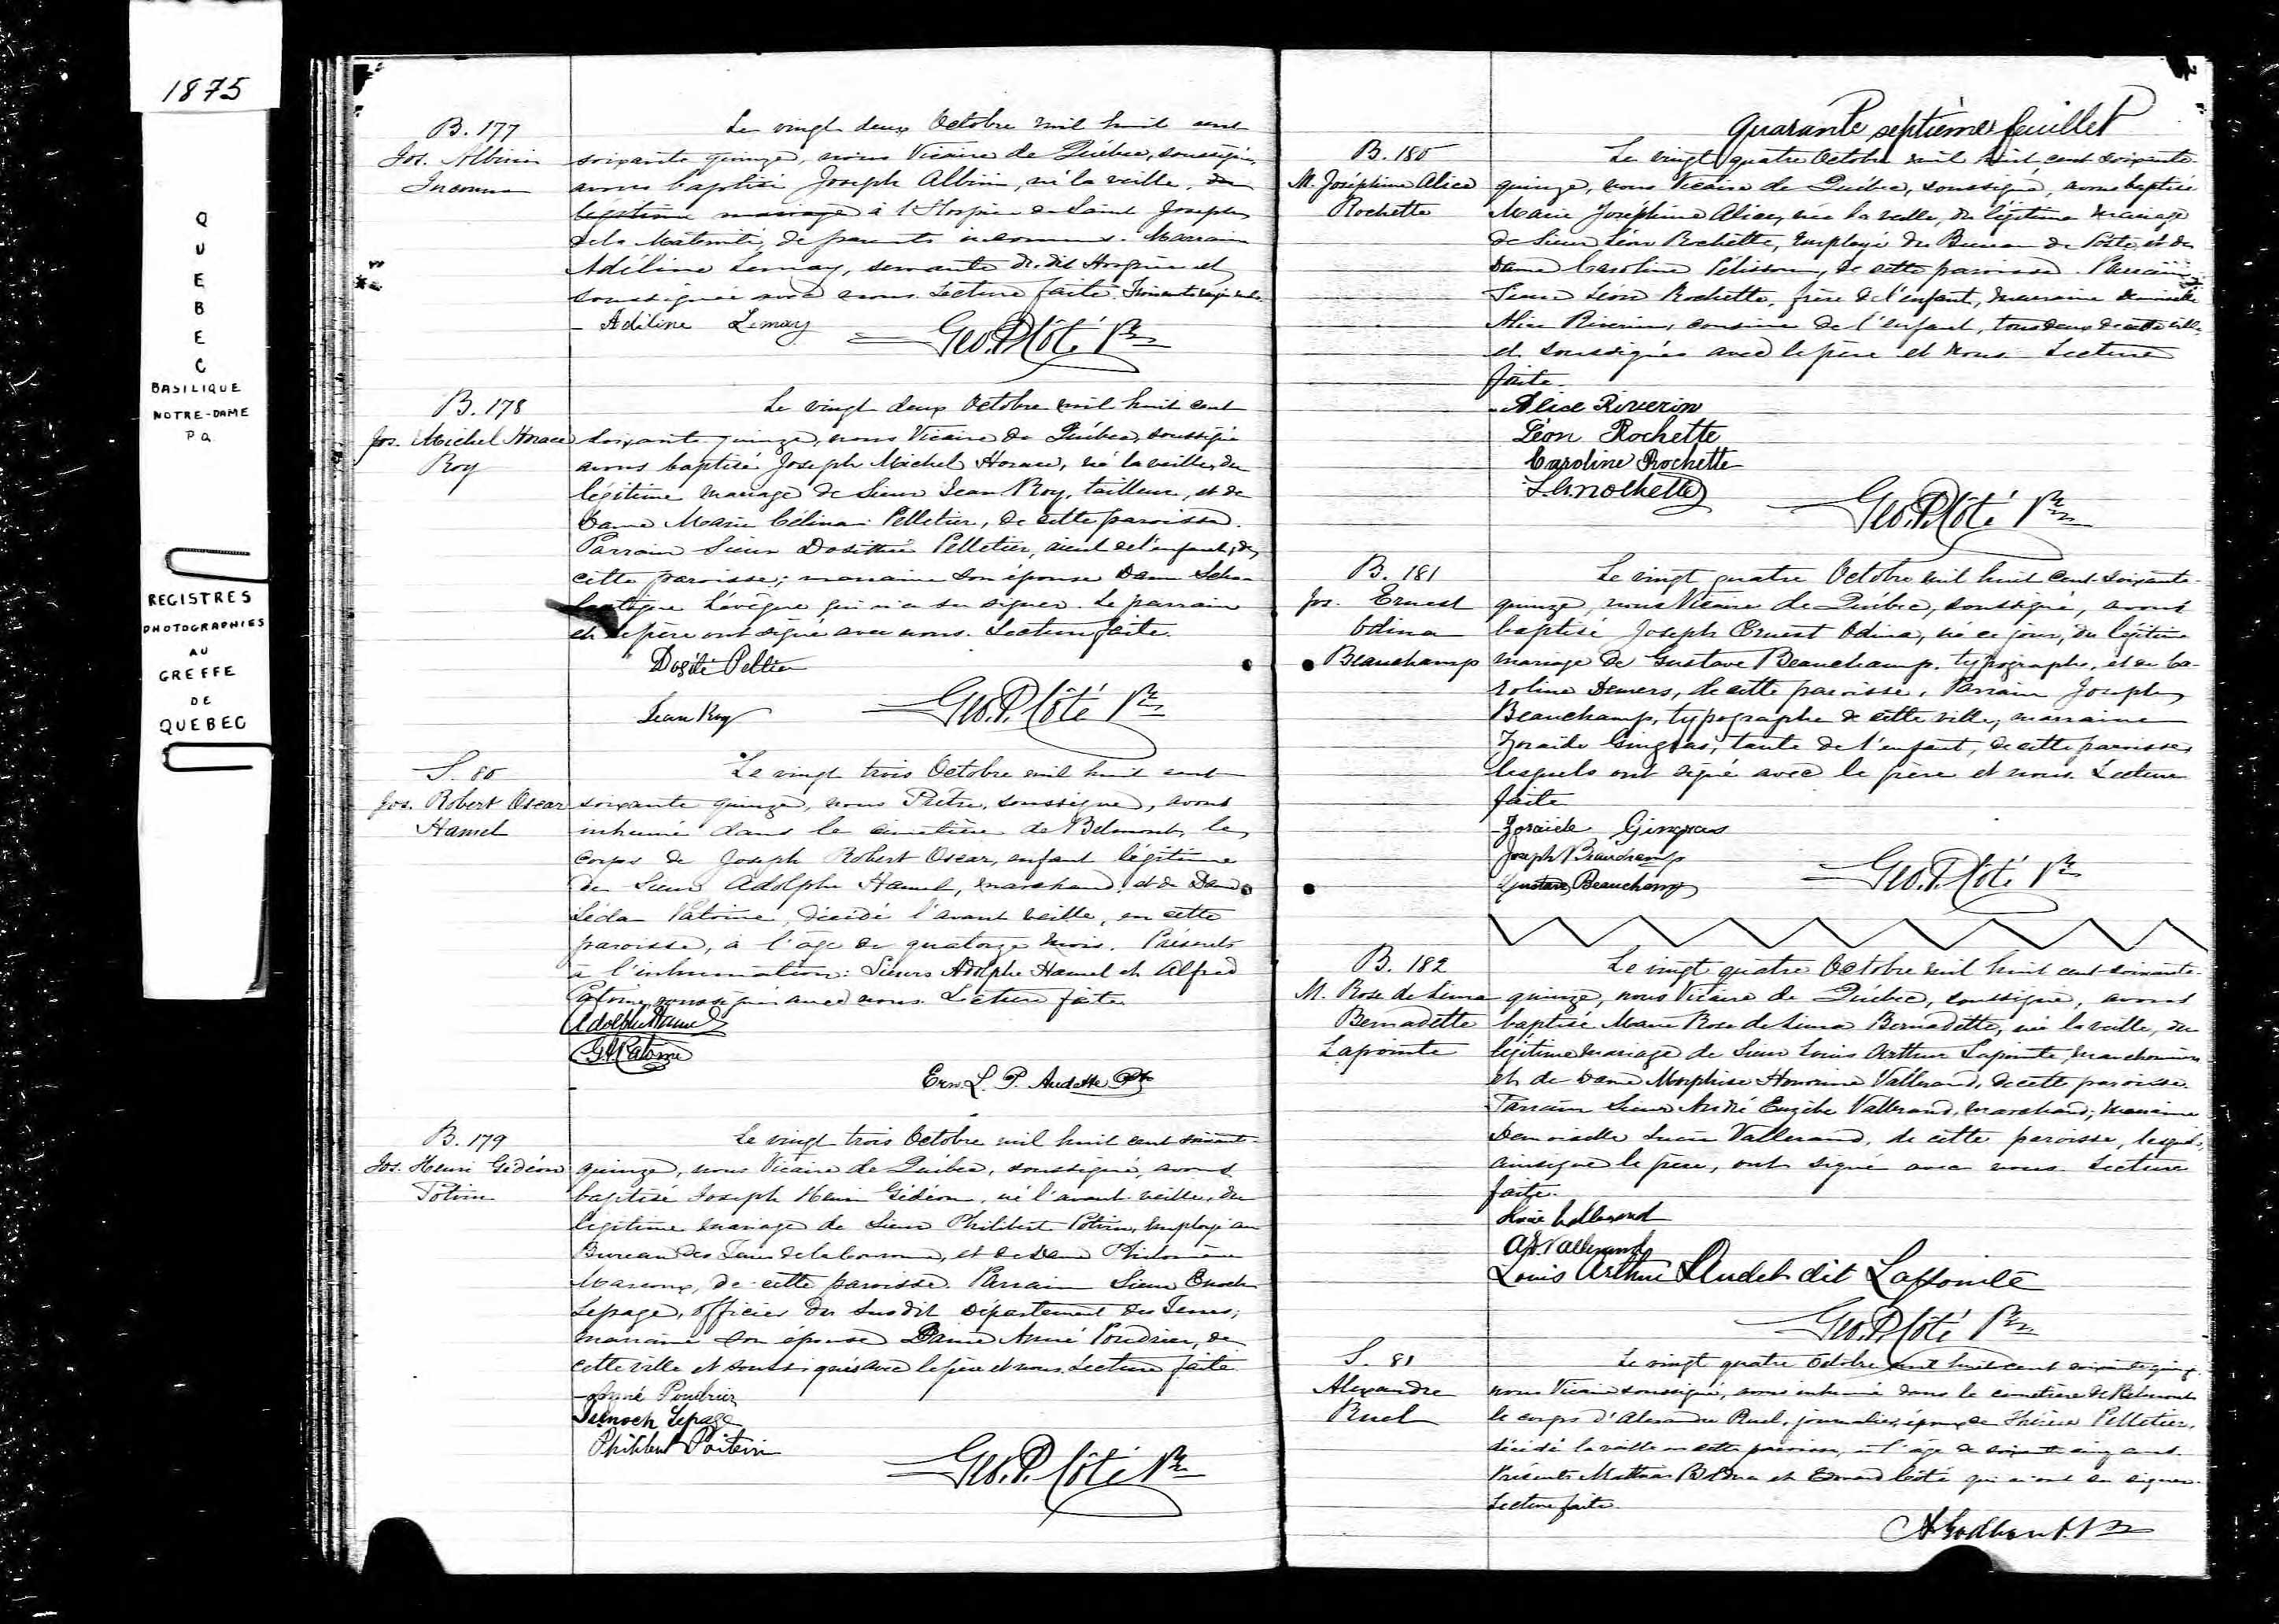 1875
QUEBEC
BASILIQUE
NOTRE-DAME
P Q
REGISTRES
PHOTOGRAPHIES
AU
GREFFE
DE
QUEBEC
B. 177
Jos. Albini
Inconnu
Le vingt deux Octobre mil huit cent
soixante quinze, nous Vicaire de Québec, soussigné,
avons baptisé Joseph Albini, né la veille, du
légitime mariage à l'Hospice de Saint Joseph
de la Maternité, de parents inconnus. Marraine
Adéline Lemay, servante du dit Hospice et
soussignée avec nous. Lecture faite. Trois mots rayés nuls.
Adiline Lemay
Geo. P. Côté Ptre
B. 178
Jos. Michel Horace
Roy
Le vingt deux Octobre mil huit cent
soixante quinze, nous Vicaire de Québec, soussigné
avons baptisé Joseph Michel Horace, né la veille, du
légitime mariage de Sieur Jean Roy, tailleur, et de
Dame Marie Célina Pelletier, de cette paroisse.
Parrain Sieur Dosithée Pelletier, aieul de l'enfant, de
cette paroisse; marraine son épouse Dame Scho-
lastique Lévêque qui n'a su signer. Le parrain
et le père ont signé avec nous. Lecture faite.
Dosité Peltier
Jean Roy
Geo. P. Côté Ptre
S. 80
Jos. Robert Oscar
Hamel
Le vingt trois Octobre mil huit cent
soixante quinze, nous Prêtre, soussigné, avons
inhumé dans le cimetière de Belmont, le
corps de Joseph Robert Oscar, enfant légitime
de Sieur Adolphe Hamel, marchand, et de Dame
Léda Patoine, décédé l'avant veille, en cette
paroisse, à l'âge de quatorze mois. Présents
à l'inhumation: Sieurs Adolphe Hamel et Alfred
Patoine, soussignés avec nous. Lecture faite.
Adolphe Hamel
G. A. Patoine
Ern. L. P. Audette Ptr
B. 179
Jos. Henri Gédéon
Potvin
Le vingt trois Octobre mil huit cent soixante-
quinze, nous Vicaire de Québec, soussigné, avons
baptisé Joseph Henri Gédéon, né l'avant veille, du
légitime mariage de Sieur Philibert Potvin, Employé au
Bureau des Terres de la Couronne, et de Dame Philomène
Marcoux, de cette paroisse. Parrain Sieur Enoch
Lepage, Officier du susdit Département des Terres;
marraine son épouse Dame Anné Poudrier, de
cette ville et soussignés avec le père et nous. Lecture faite.
Anné Poudrier
Enoch Lepage
Philibert Poitvin
Geo. P. Côté Ptre
Quarante septième feuillet
B. 180
M. Joséphine Alice
Rochette
Le vingt quatre Octobre mil huit cent soixante-
quinze, nous Vicaire de Québec, soussigné, avons baptisé
Marie Joséphine Alice, née la veille, du légitime mariage
de Sieur Léon Rochette, Employé du Bureau de Poste, et de
Dame Caroline Pelisson, de cette paroisse. Parrain
Sieur Léon Rochette, frère de l'enfant, marraine Demoiselle
Alice Riverin, cousine de l'enfant, tous deux de cette ville
et soussignés avec le père et nous. Lecture
faite.
Alice Riverin
Léon Rochette
Caroline Rochette
Geo. P. Côté Ptre
B. 181
Jos. Ernest
Odina
Beauchamp
Le vingt quatre Octobre mil huit cent soixante-
quinze, nous Vicaire de Québec, soussigné, avons
baptisé Joseph Ernest Odina, né ce jour, du légitime
mariage de Gustave Beauchamp, typographe, et de Ca-
roline Demers, de cette paroisse. Parrain Joseph
Beauchamp, typographe de cette ville, marraine
Zoraïde Gingras, tante de l'enfant, de cette paroisse
lesquels ont signé avec le père et nous. Lecture
faite
Zoraide Gingras
Joseph Beauchamp
Gustave Beauchamp
Geo. P. Côté Ptre
B. 182
M. Rose de Lima
Bernadette
Lapointe
Le vingt quatre Octobre mil huit cent soixante-
quinze, nous Vicaire de Québec, soussigné, avons
baptisé Marie Rose de Lima Bernadette, née la veille, du
légitime mariage de Sieur Louis Arthur Lapointe, marchand
et de Dame Morphise Honorine Vallerand, de cette paroisse.
Parrain Sieur André Euzèbe Vallerand, marchand; marraine
Demoiselle Lucie Vallerand, de cette paroisse, lesquels,
ainsi que le père, ont signé avec nous. Lecture
faite.
Lucie Vallerand
A. E. Vallerand
Louis Arthur Audet dit Lapointe
Geo. P. Côté Ptre
S. 81
Alexandre
Ruel
Le vingt quatre Octobre mil huit cent soixante quinze
nous Vicaire soussigné, avons inhumé dans le cimetière de Belmont
le corps d'Alexandre Ruel, journalier, époux de Thérèse Pelletier,
décédé la veille en cette paroisse, à l'âge de soixante cinq ans.
Présents Mathias Bédard et Edouard Côté qui n'ont su signer.
Lecture faite.
A. Godbout Ptre